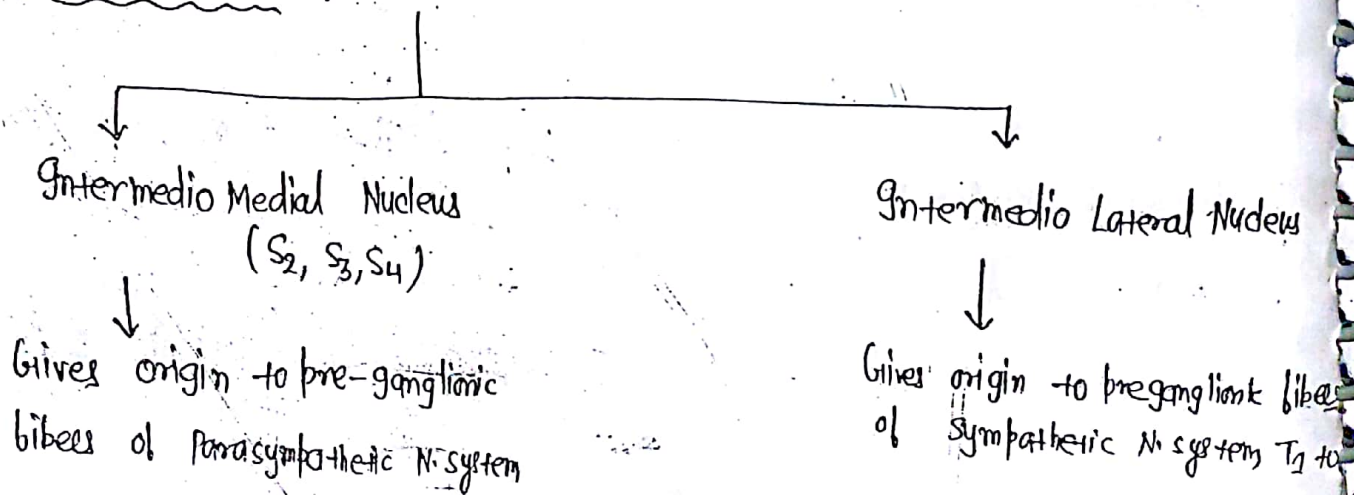 Intermedio Medial Nucleus
(S2, S3, S4)
Gives origin to pre-ganglionic
fibers of Parasympathetic N. system
Intermedio Lateral Nucleus
Gives origin to preganglionic fibers
of sympathetic N. system T1 to